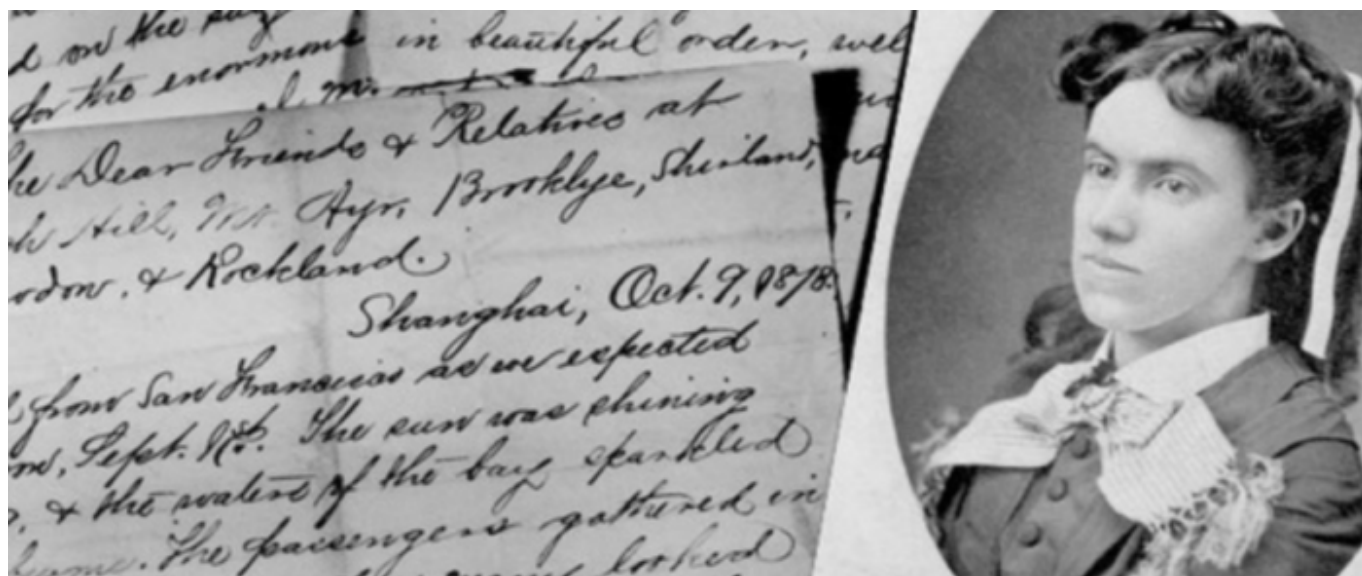 d on the bay
for the enormous in beautiful order, wel
he Dear Friends & Relatives at
Hill, Mt. Ayr, Brooklye, Shirland,
& Rockland.
Shanghai, Oct. 9, 1878.
from San Francisco as we expected
Sept. The sun was shining
& the waters of the bay sparkled
The passengers gathered in
looked